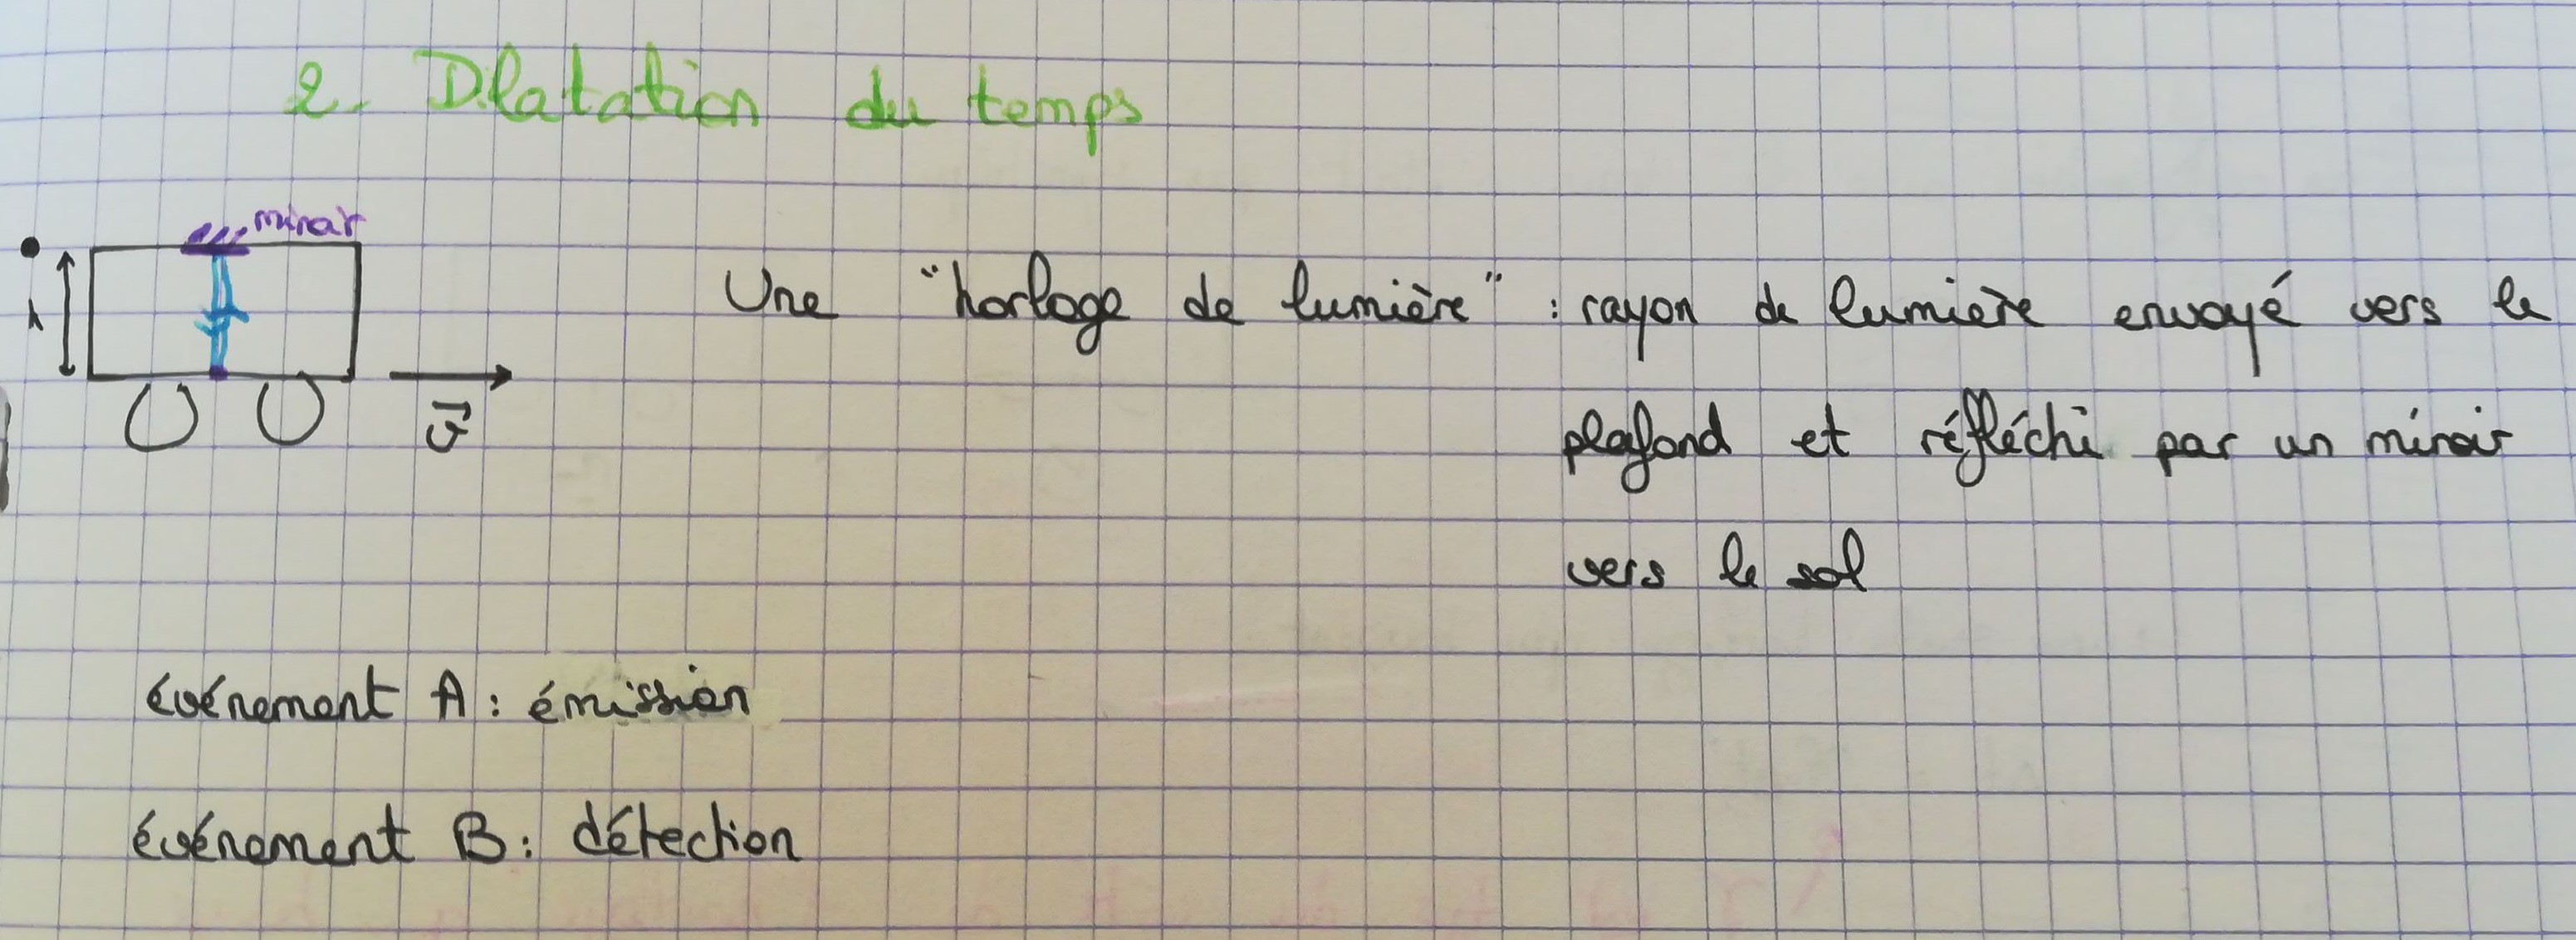 2. Dilatation du temps
miroir
Une "horloge de lumière" : rayon de lumière envoyé vers le
plafond et réfléchi par un miroir
vers le sol
v
événement A : émission
événement B : détection